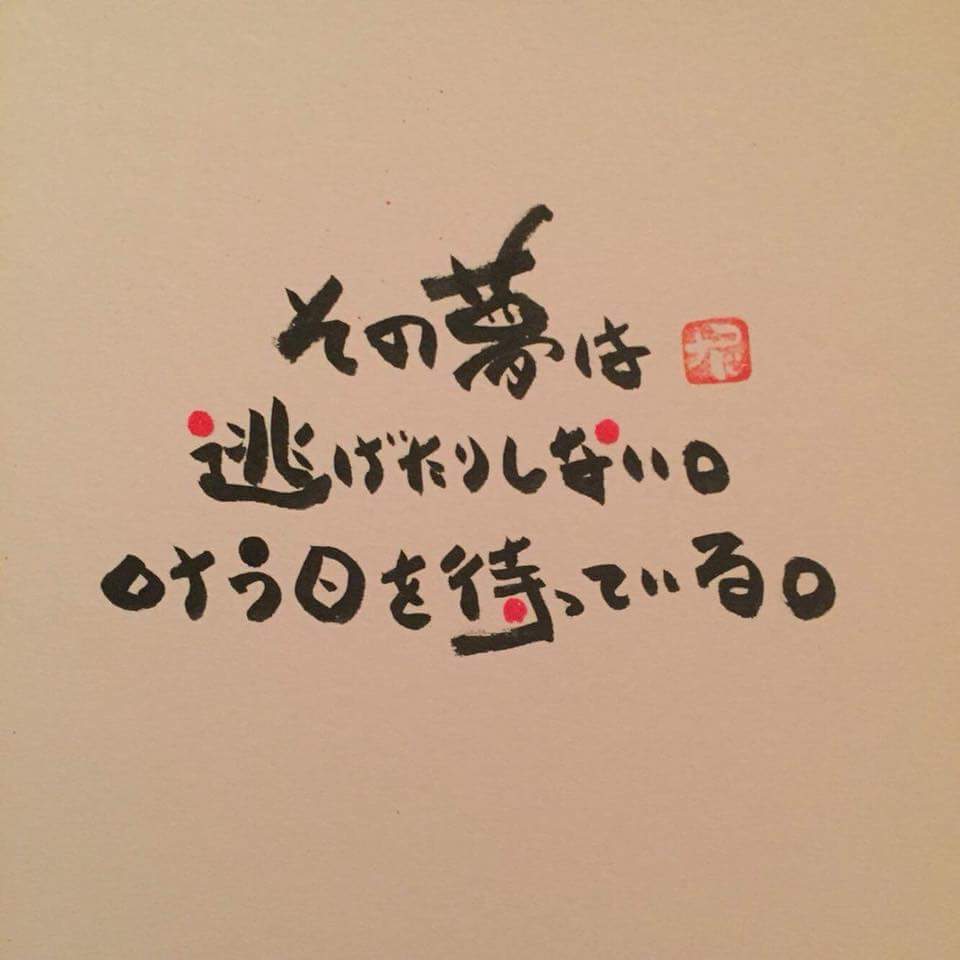 その夢は
逃げたりしない。
叶う日を待っている。